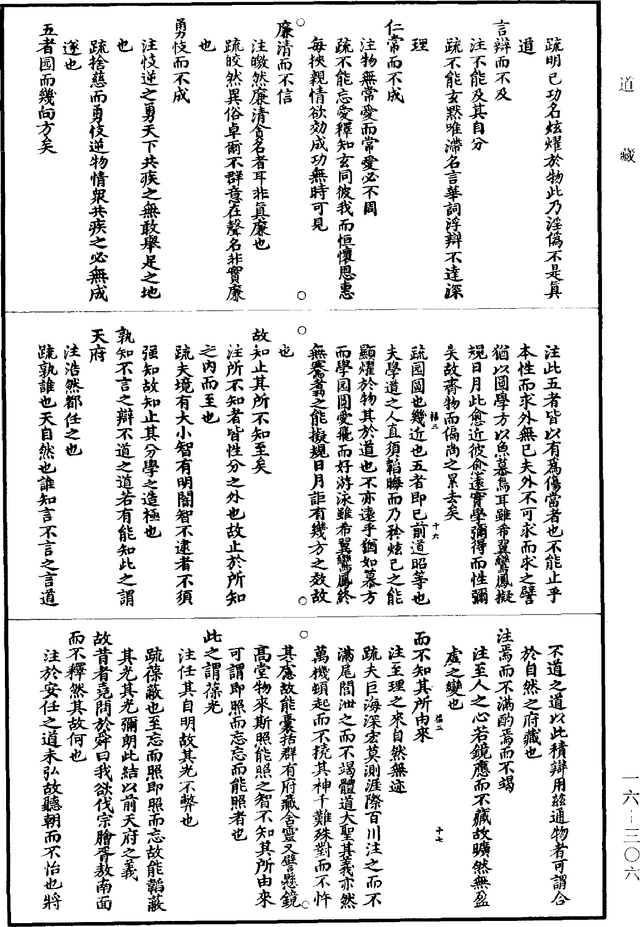 道藏
疏明已功名炫燿於物此乃淫僞不是真
道
言辯而不及
注不能及其自分
疏不能玄默唯滯名言華詞浮辯不達深
理
仁常而不成
注物無常愛而常愛必不周
疏不能忘愛釋知玄同彼我而恒懷恩惠
每挾親情欲効成功無時可見
廉清而不信
注皦然廉清貪名者耳非真廉也
疏皎然異俗卓爾不群意在聲名非實廉
也
勇忮而不成
注忮逆之勇天下共疾之無敢舉足之地
也
疏捨慈而勇忮逆物情衆共疾之必無成
遂也
五者园而幾向方矣
注此五者皆以有爲傷當者也不能止乎
本性而求外無已夫外不可求而求之譬
猶以圓學方以魚慕鳥耳雖希翼鸞鳳擬
規日月此愈近彼愈遠實學彌得而性彌
失故齊物而偏尚之累去矣
疏园圓也幾近也五者即已前道昭等也
夫學道之人直須韜晦而乃矜炫己之能
顯燿於物其於道也不亦遠乎猶如慕方
而學园圓愛飛而好游泳雖希翼鸞鳳終
無騫翥之能擬規日月詎有幾方之效故
也
故知止其所不知至矣
注所不知者皆性分之外也故止於所知
之內而至也
疏夫境有大小智有明闇智不逮者不須
强知故知止其分學之造極也
孰知不言之辯不道之道若有能知此之謂
天府
注浩然都任之也
疏孰誰也天自然也誰知言不言之言道
不道之道以此積辯用茲通物者可謂合
於自然之府藏也
注焉而不滿酌焉而不竭
注至人之心若鏡應而不藏故曠然無盈
虛之變也
而不知其所由來
注至理之來自然無迹
疏夫巨海深宏莫測涯際百川注之而不
滿尾閭泄之而不竭體道大聖其義亦然
萬機頓起而不撓其神千難殊對而不忤
其慮故能囊括群有府藏含靈又譬懸鏡
高堂物來斯照能照之智不知其所由來
可謂即照而忘忘而能照者也
此之謂葆光
注任其自明故其光不弊也
疏葆蔽也至忘而照即照而忘故能韜蔽
其光其光彌朗此結以前天府之義
故昔者堯問於舜曰我欲伐宗膾胥敖南面
而不釋然其故何也
注於安任之道未弘故聽朝而不怡也將
一六—三〇六